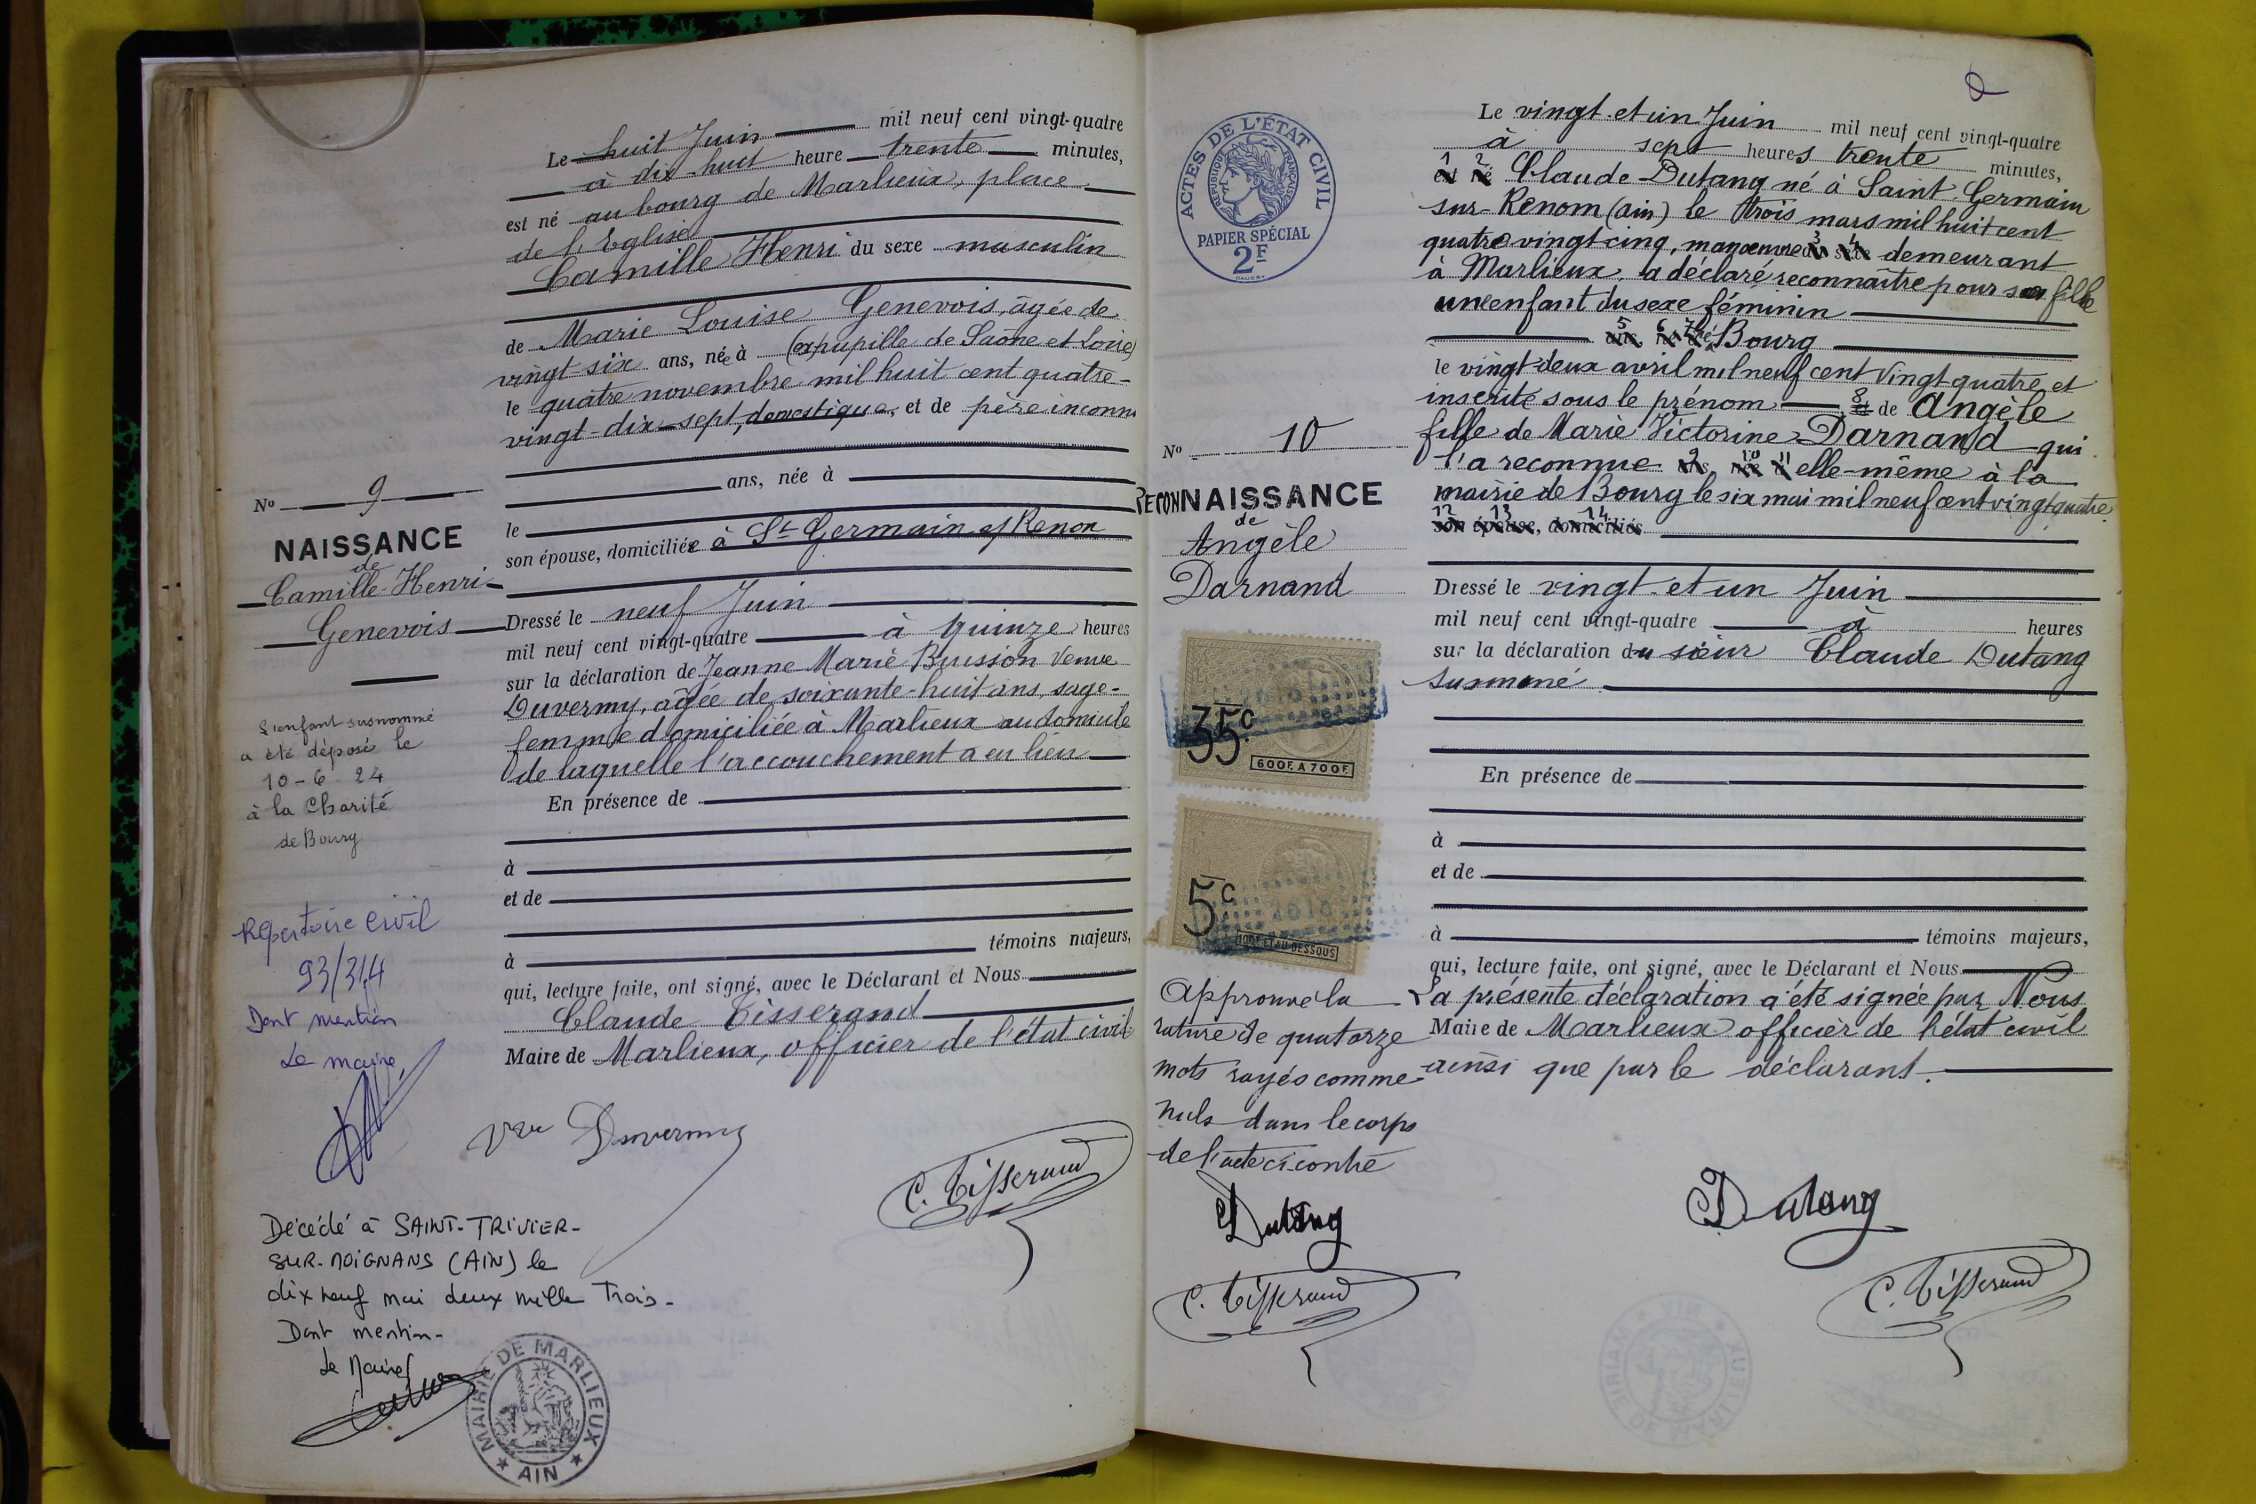 Le huit Juin mil neuf cent vingt-quatre
à dix-huit heure trente minutes,
est né au bourg de Marlieux, place
de l'Eglise
Camille Henri du sexe masculin
de Marie Louise Genevois, âgée de
vingt-six ans, née à (expupille de Saône et Loire)
le quatre novembre mil huit cent quatre-
vingt-dix-sept, domestique, et de père inconnu
ans, née à
le
son épouse, domiciliée à St Germain s/ Renon
Dressé le neuf Juin
mil neuf cent vingt-quatre à quinze heures
sur la déclaration de Jeanne Marie Buisson Veuve
Duvermy, âgée de soixante-huit ans, sage-
femme domiciliée à Marlieux au domicile
de laquelle l'accouchement a eu lieu
En présence de
à
et de
à témoins majeurs,
qui, lecture faite, ont signé, avec le Déclarant et Nous
Claude Tisserand
Maire de Marlieux, officier de l'état civil
Vve Duvermy
C. Tisserand
No 9
NAISSANCE
de
Camille-Henri
Genevois
L'enfant susnommé
a été déposé le
10-6-24
à la Charité
de Bourg
Répertoire civil
93/314
Dont mention
Le maire,
Décédé à SAINT-TRIVIER-
SUR-MOIGNANS (AIN) le
dix neuf mai deux mille Trois-
Dont mention-
Le Maire
MAIRIE DE MARLIEUX
AIN
ACTES DE L'ÉTAT CIVIL
RÉPUBLIQUE FRANÇAISE
PAPIER SPÉCIAL
2F
No 10
RECONNAISSANCE
de
Angèle
Darnand
35c
600F. A 700F.
5c
100F. ET AU DESSOUS
Approuvé la
rature de quatorze
mots rayés comme
nuls dans le corps
de l'acte ci-contre
Dutang
C. Tisserand
Le vingt-et-un Juin mil neuf cent vingt-quatre
à sept heures trente minutes,
1 2 est né Claude Dutang né à Saint Germain
sur-Renom (ain) le trois mars mil huit cent
quatre vingt-cinq, manœuvre 3 4 demeurant
à Marlieux, a déclaré reconnaître pour sa fille
une enfant du sexe féminin
5 6 7 né Bourg
le vingt-deux avril mil neuf cent vingt-quatre et
inscrite sous le prénom 8 et de Angèle
fille de Marie Victorine Darnand qui
l'a reconnue 9 ans, 10 née 11 à elle-même à la
mairie de Bourg le six mai mil neuf cent vingt-quatre
12 13 14
son épouse, domiciliés
Dressé le vingt-et un Juin
mil neuf cent vingt-quatre à heures
sur la déclaration du sieur Claude Dutang
susnomé
En présence de
à
et de
à témoins majeurs,
qui, lecture faite, ont signé, avec le Déclarant et Nous
La présente déclaration a été signée par Nous
Maire de Marlieux officier de l'état civil
ainsi que par le déclarant.
Dutang
C. Tisserand